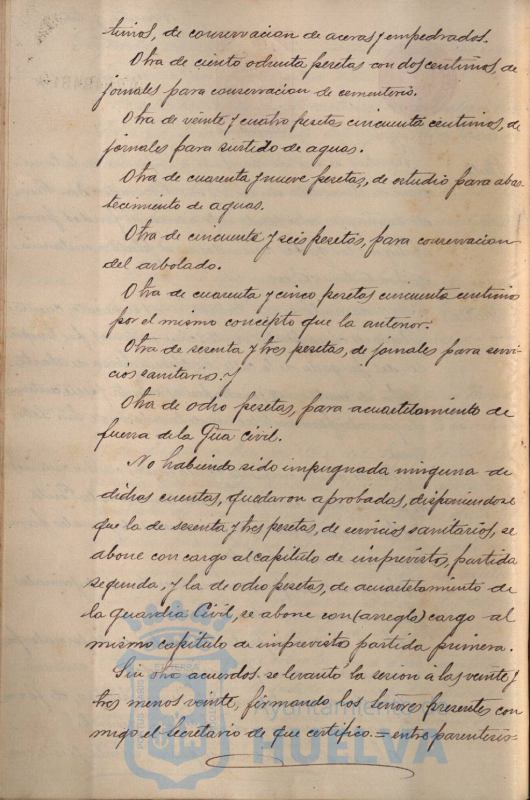 timos, de conservacion de aceras y empedrados.
Otra de ciento ochenta pesetas con dos centimos, de
jornales para conservacion de cementerio.
Otra de veinte y cuatro pesetas cincuenta centimos, de
jornales para surtido de aguas.
Otra de cuarenta y nueve pesetas, de estudio para abas
tecimiento de aguas.
Otra de cincuenta y seis pesetas, para conservacion
del arbolado.
Otra de cuarenta y cinco pesetas cincuenta centimo
por el mismo concepto que la anterior.
Otra de sesenta y tres pesetas, de jornales para servi-
cios sanitarios. y
Otra de ocho pesetas, para acuartelamiento de
fuerza de la Gua civil.
No habiendo sido impugnada ninguna de
dichas cuentas, quedaron aprobadas, disponiendose
que la de sesenta y tres pesetas, de servicios sanitarios, se
abone con cargo al capitulo de imprevistos, partida
segunda, y la de ocho pesetas, de acuartelamiento de
la guardia Civil, se abone con (arreglo) cargo al
mismo capitulo de imprevistos partida primera.
Sin otro acuerdos se levantó la sesion á las veinte y
tres menos veinte, firmando los Señores presentes con
migo el secretario de que certifico. = entre parentesis =
Ayuntamiento
HUELVA